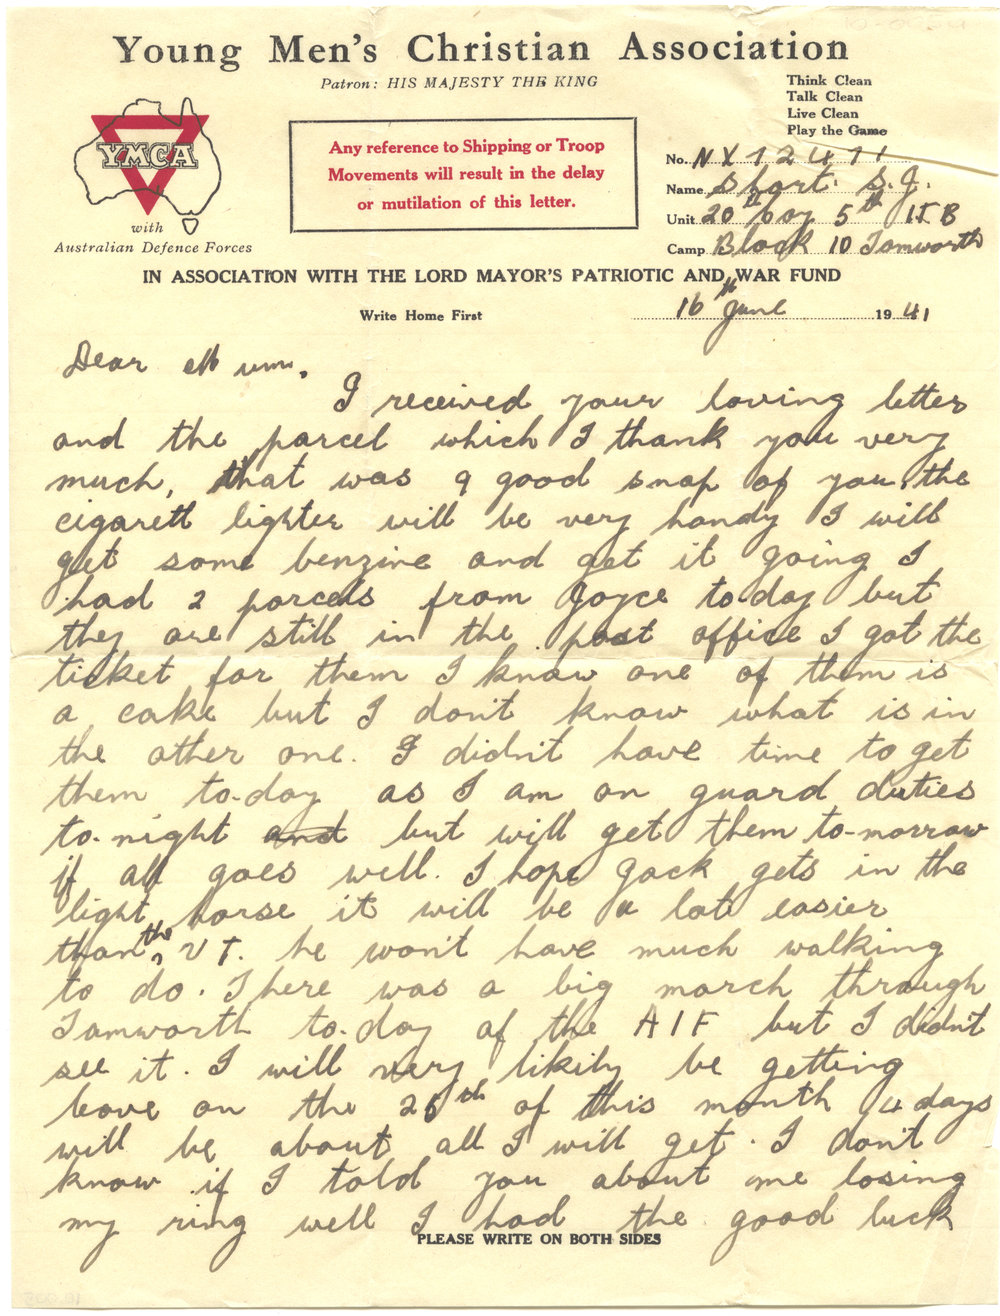 Young Men's Christian Association
Patron: HIS MAJESTY THE KING
Think Clean
Talk Clean
Live Clean
Play the Game
YMCA
with
Australian Defence Forces
Any reference to Shipping or Troop
Movements will result in the delay
or mutilation of this letter.
No. NX 72471
Name Short. S.J.
Unit 20th Coy 5th ITB
Camp Block 10 Tamworth
IN ASSOCIATION WITH THE LORD MAYOR'S PATRIOTIC AND WAR FUND
Write Home First
16th June 1941
Dear Mum.
I received your loving letter
and the parcel which I thank you very
much, that was a good snap of you, the
cigarett lighter will be very handy I will
get some benzine and get it going I
had 2 parcels from Joyce to-day but
they are still in the post office I got the
ticket for them I know one of them is
a cake but I don't know what is in
the other one. I didn't have time to get
them to-day as I am on guard duties
to-night and but will get them to-morrow
if all goes well. I hope Jack gets in the
light horse it will be a lot easier
than the V T. he won't have much walking
to do. There was a big march through
Tamworth to-day of the AIF but I didn't
see it. I will very likily be getting
leave on the 26th of this month 4 days
will be about all I will get. I don't
know if I told you about me losing
my ring well I had the good luck
PLEASE WRITE ON BOTH SIDES